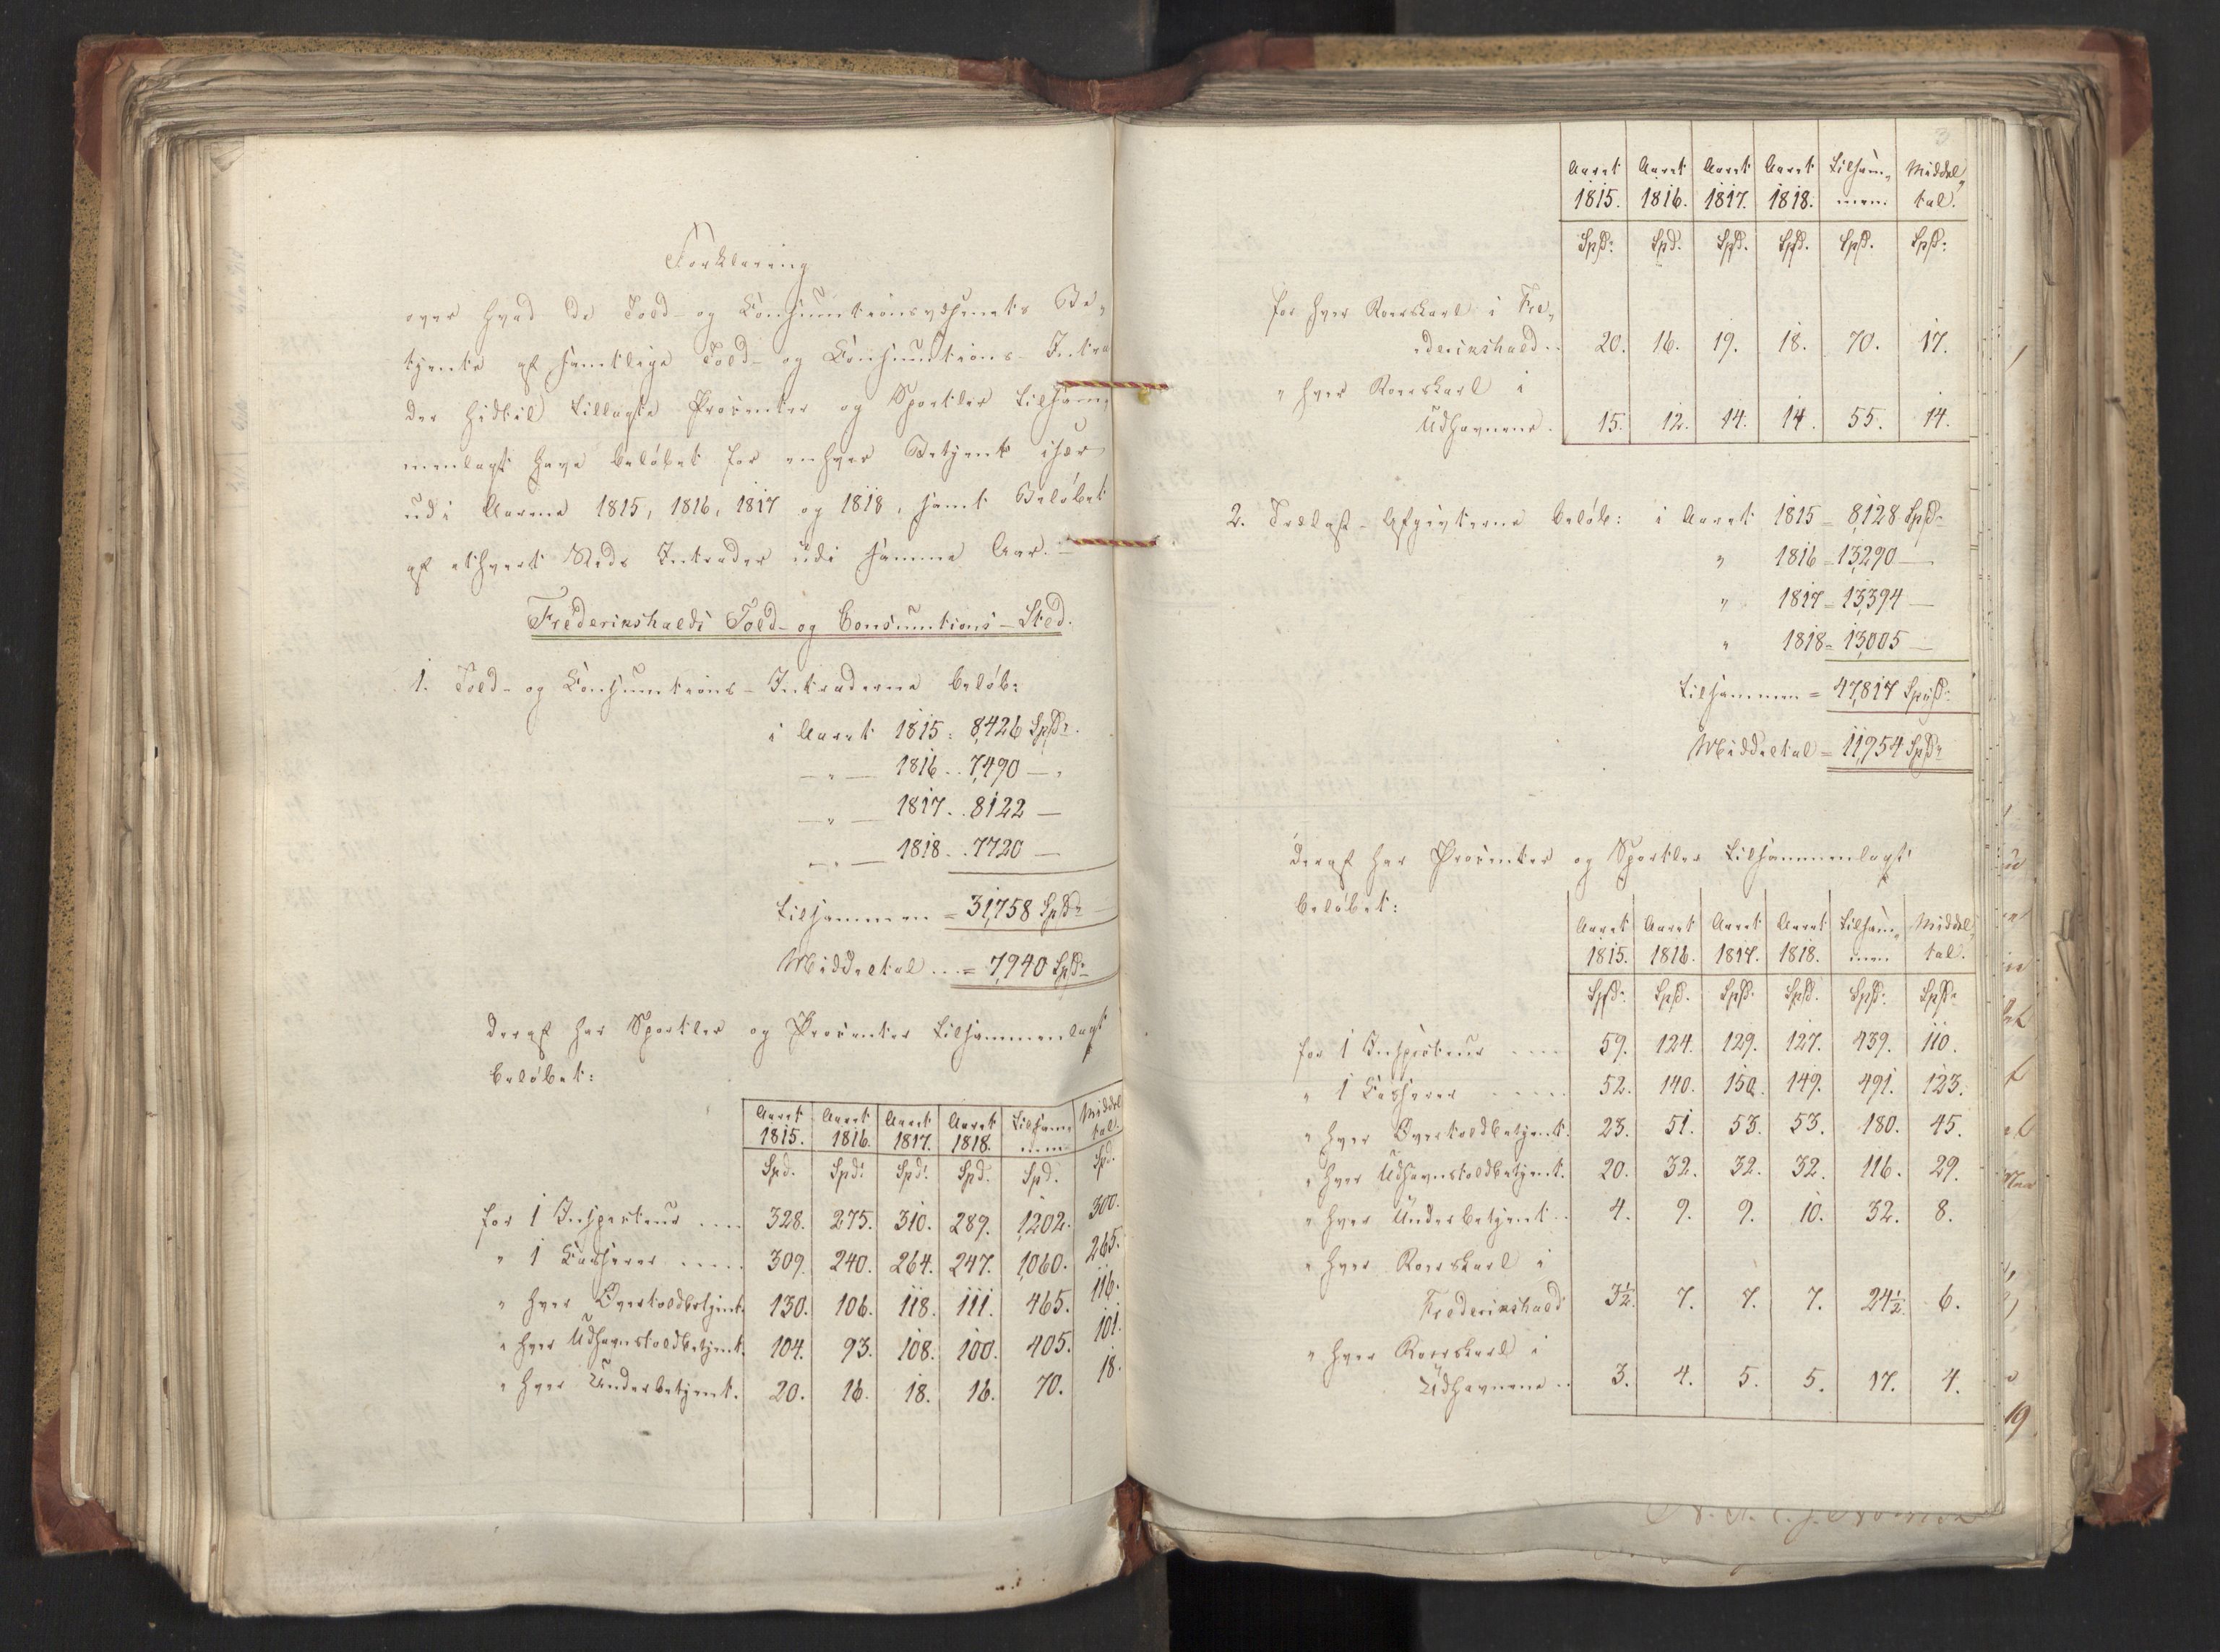 Forklaring
over hvad de Told- og Consumtionsvæsenets Be„
tjente af samtlige Told- og Consumtions-Intra
der hidtil tillagte Procenter og Sportler tilsam„
menlagt have beløbet for enhver Betjent især
udi Aarene 1815, 1816, 1817 og 1818, samt Beløbet
af ethvert Steds Intrader udi samme Aar. —
Frederikshalds Told- og Consumtions-Sted.
1. Told- og Consumtions-Intraderne beløb:
i Aaret 1815 = 8,426 Spd.
— „ — 1816 .. 7,490 — „
— „ — 1817 .. 8122 —
— „ — 1818 .. 7720 —
tilsammen = 31,758 Spd.
Middeltal ... = 7,940 Spd.
Deraf har Sportler og Procenter tilsammenlagt
beløbet:
Aaret Aaret Aaret Aaret tilsam„ Middel
1815. 1816. 1817. 1818. men tal.
Spd. Spd. Spd. Spd. Spd. Spd.
for 1 Inspecteur .... 328. 275. 310. 289. 1,202. 300.
„ 1 Casserer ..... 309. 240. 264. 247. 1,060. 265.
„ hver Overtoldbetjent. 130. 106. 118. 111. 465. 116.
„ hver Udhavnstoldbetjent. 104. 93. 108. 100. 405. 101.
„ hver Underbetjent. 20. 16. 18. 16. 70. 18.
3
Aaret Aaret Aaret Aaret tilsam„ Middel„
1815. 1816. 1817. 1818. men. tal.
Spd. Spd. Spd. Spd. Spd. Spd.
for hver Roerskarl i Fre„
derikshald .. 20. 16. 19. 18. 70. 17.
„ hver Roerskarl i
Udhavnene . 15. 12. 14. 14. 55. 14.
2. Trælast-Afgivterne beløb: i Aaret 1815 = 8,128 Spd.
„ 1816 = 13,290 —
„ 1817 = 13,394 —
„ 1818 = 13,005 —
tilsammen = 47,817 Spd.
Middeltal = 11,954 Spd.
Deraf har Procenter og Sportler tilsammenlagt
beløbet:
Aaret Aaret Aaret Aaret tilsam„ Middel„
1815. 1816. 1817. 1818. men tal.
Spd. Spd. Spd. Spd. Spd. Spd.
for 1 Inspecteur .... 59. 124. 129. 127. 439. 110.
„ 1 Casserer ..... 52. 140. 150. 149. 491. 123.
„ hver Overtoldbetjent. 23. 51. 53. 53. 180. 45.
„ hver Udhavnstoldbetjent. 20. 32. 32. 32. 116. 29.
„ hver Underbetjent .. 4. 9. 9. 10. 32. 8.
„ hver Roerskarl i
Frederikshald 3½. 7. 7. 7. 24½. 6.
„ hver Roerskarl i
Udhavnene .. 3. 4. 5. 5. 17. 4.